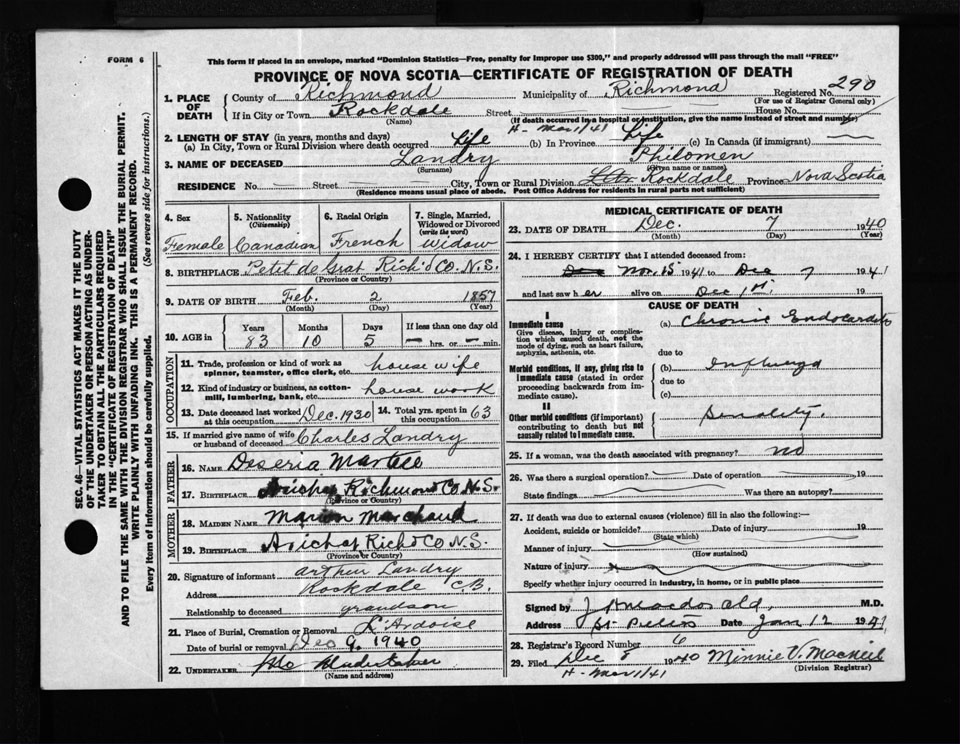 FORM 6
This form if placed in an envelope, marked "Dominion Statistics—Free, penalty for improper use $300," and properly addressed will pass through the mail "FREE"
PROVINCE OF NOVA SCOTIA—CERTIFICATE OF REGISTRATION OF DEATH
SEC. 46—VITAL STATISTICS ACT MAKES IT THE DUTY
OF THE UNDERTAKER OR PERSON ACTING AS UNDER-
TAKER TO OBTAIN ALL THE PARTICULARS REQUIRED
IN THE "CERTIFICATE OF REGISTRATION OF DEATH"
AND TO FILE THE SAME WITH THE DIVISION REGISTRAR WHO SHALL ISSUE THE BURIAL PERMIT.
WRITE PLAINLY WITH UNFADING INK. THIS IS A PERMANENT RECORD.
Every item of information should be carefully supplied. (See reverse side for instructions.)
1. PLACE OF DEATH
County of Richmond Municipality of Richmond Registered No. 290
(For use of Registrar General only)
If in City or Town Rockdale Street House No.
(Name) (If death occurred in a hospital or institution, give the name instead of street and number)
H- Mar 11/41
2. LENGTH OF STAY (in years, months and days)
(a) In City, Town or Rural Division where death occurred Life (b) In Province Life (c) In Canada (if immigrant)
3. NAME OF DECEASED Landry Philomen
(Surname) (Given name or names)
RESIDENCE No. Street City, Town or Rural Division Rockdale Province Nova Scotia
(Residence means usual place of abode. Post Office Address for residents in rural parts not sufficient)
4. Sex
Female
5. Nationality
(Citizenship)
Canadian
6. Racial Origin
French
7. Single, Married,
Widowed or Divorced
(write the word)
widow
8. BIRTHPLACE Petit de Grat Rich'd Co. N.S.
(Province or Country)
9. DATE OF BIRTH Feb. 2 1857
(Month) (Day) (Year)
10. AGE in Years Months Days If less than one day old
83 10 5 — hrs. or — min.
OCCUPATION
11. Trade, profession or kind of work as
spinner, teamster, office clerk, etc. house wife
12. Kind of industry or business, as cotton-
mill, lumbering, bank, etc. house work
13. Date deceased last worked
at this occupation Dec. 1930
14. Total yrs. spent in
this occupation 63
15. If married give name of wife
or husband of deceased Charles Landry
FATHER
16. NAME Deseria Martell
17. BIRTHPLACE Arichat Richmond Co. N.S.
(Province or Country)
MOTHER
18. MAIDEN NAME Marion Marchand
19. BIRTHPLACE Arichat Rich'd Co N.S.
(Province or Country)
20. Signature of informant Arthur Landry
Address Rockdale C.B.
Relationship to deceased grandson
21. Place of Burial, Cremation or Removal L'Ardoise
Date of burial or removal Dec 9, 1940
22. UNDERTAKER No Undertaker
(Name and address)
MEDICAL CERTIFICATE OF DEATH
23. DATE OF DEATH Dec. 7 1940
(Month) (Day) (Year)
24. I HEREBY CERTIFY that I attended deceased from:
Nov. 15 1941 to Dec 7 1941
and last saw her alive on Dec 1st. 19
CAUSE OF DEATH
I
Immediate cause
Give disease, injury or complica-
tion which caused death, not the
mode of dying, such as heart failure,
asphyxia, asthenia, etc.
(a) Chronic Endocarditis
due to
Morbid conditions, if any, giving rise to
immediate cause (stated in order
proceeding backwards from im-
mediate cause).
(b) Influenza
due to
(c)
II
Other morbid conditions (if important)
contributing to death but not
causally related to immediate cause.
Senality.
25. If a woman, was the death associated with pregnancy? no
26. Was there a surgical operation? Date of operation 19
State findings Was there an autopsy?
27. If death was due to external causes (violence) fill in also the following:—
Accident, suicide or homicide? Date of injury 19
(State which)
Manner of injury
(How sustained)
Nature of injury
Specify whether injury occurred in industry, in home, or in public place
Signed by J H Macdonald, M.D.
Address St. Peters Date Jan 12 1941
28. Registrar's Record Number 6
29. Filed Dec 8 1940 Minnie V. MacNeil
(Division Registrar)
H- Mar 11/41